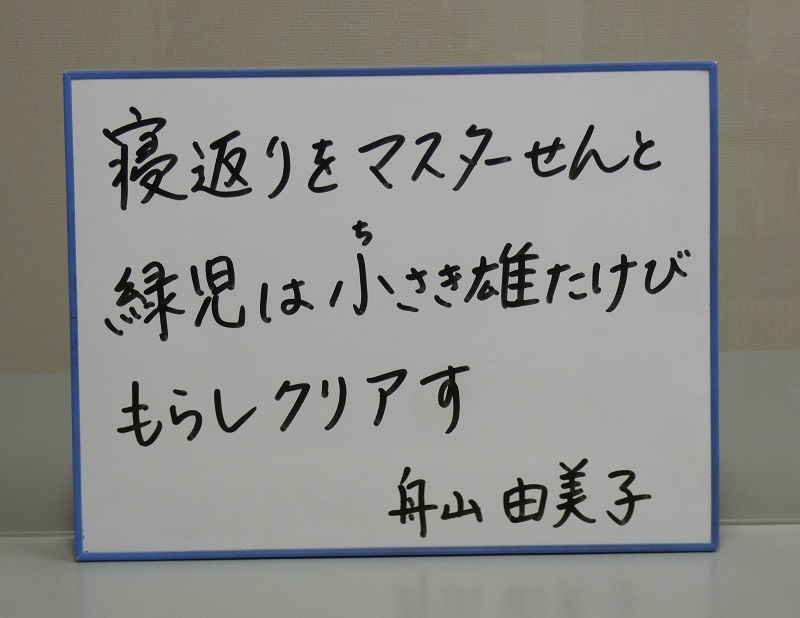 寝返りをマスターせんと
緑児は小さき雄たけび
ち
もらしクリアす
舟山由美子